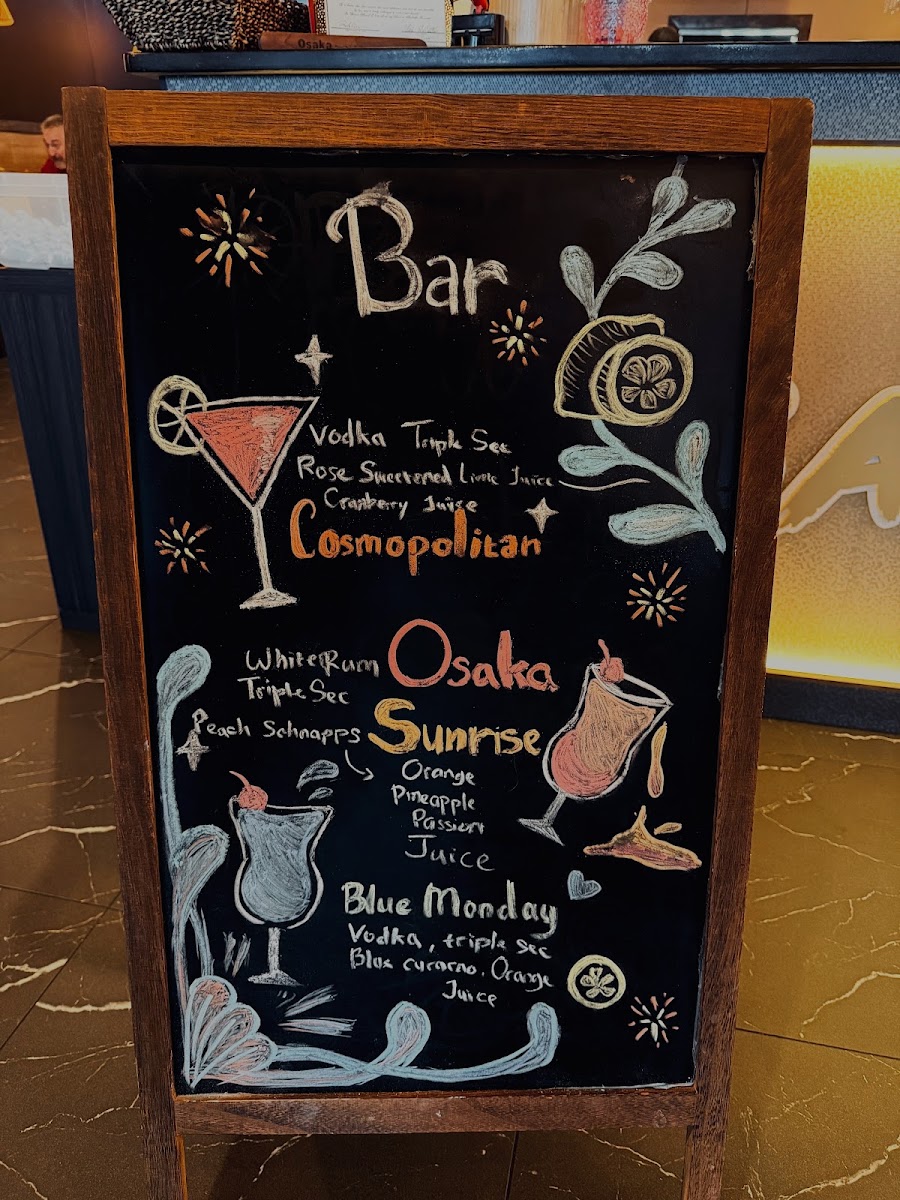 Osaka
Bar
Vodka Triple Sec
Rose Sweetened Lime Juice
Cranberry Juice
Cosmopolitan
White Rum
Triple Sec
Peach Schnapps
Osaka
Sunrise
Orange
Pineapple
Passion
Juice
Blue Monday
Vodka, triple sec
Blue curacao. Orange
Juice
A